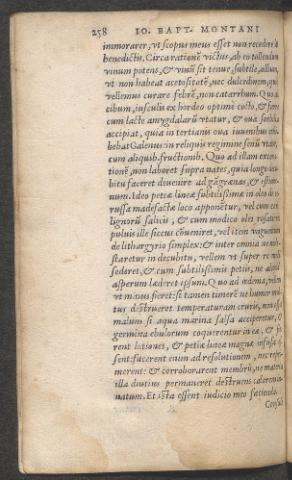 258 IO. BAPT. MONTANI
immorarer, vt scopus meus esset non recedere à
benedictis. Circa rationē victus, ab eo tollendum
vinum potens, & vinū sit tenue, subtile, album,
vt non habeat acetositatē, nec dulcedinem, quia
vellemus curare febrē, non catarrhum. Quo ad
cibum, iusculis ex hordeo optimè cocto, & farre
cum lacte amygdalarū vtatur, & oua sorbilia
accipiat, quia in tertianis oua iuuenibus
bebat Galenus in reliquis regimine senū vtatur,
cum aliquib. fructionib. Quo ad illam excoria-
tionē, non laboret supra nates, quia longo de-
bitu faceret deuenire ad gāgrænas, & esthiom-
num. Ideo petiæ lineæ subtilissimæ in oleo de ce-
russa madefactæ loco apponātur, vel cum cera
lignorū salicis, & cum modico olei rosati
puluis ille siccus cōueniret, vel item vnguentum
de lithargyrio simplex: & inter omnia ne mol-
staretur in decubitu, vellem vt super re molli
sederet, & cum subtilissimis petiis, ne aliquid
asperum læderet ipsum. Quo ad œdema, vellem
vt manus fieret: si tamen timerē ne humor
tus destrueret temperaturam cruris, non esset
malum si aqua marina salsa acciperetur,
germina ebulorum coquerentur in ea, & fie-
rent lotiones, & petiæ lineæ magnæ infusæ
sent: facerent enim ad resolutionem, nec repri-
merent: & corroborarent membrū, ne materia
illa diutius permaneret destruens calorem
natum. Et ista essent iudicio meo facienda.
Consul